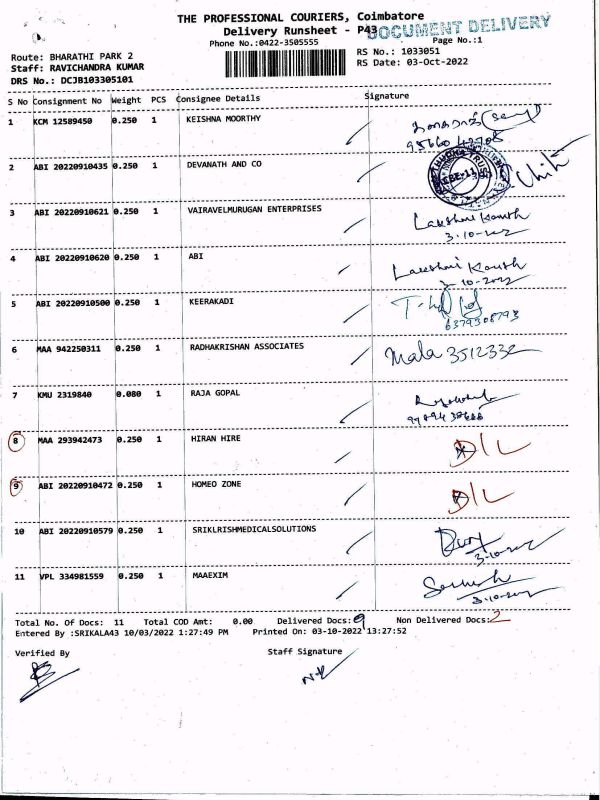 THE PROFESSIONAL COURIERS, Coimbatore
Delivery Runsheet - P43
DOCUMENT DELIVERY
Phone No.:0422-3505555
Page No.:1
Route: BHARATHI PARK 2
RS No.: 1033051
Staff: RAVICHANDRA KUMAR
RS Date: 03-Oct-2022
DRS No.: DCJB103305101
S No Consignment No Weight PCS Consignee Details Signature
1 KCM 12589450 0.250 1 KEISHNA MOORTHY
2 ABI 20220910435 0.250 1 DEVANATH AND CO
3 ABI 20220910621 0.250 1 VAIRAVELMURUGAN ENTERPRISES Lakshmi Kanth
3-10-2022
4 ABI 20220910620 0.250 1 ABI Lakshmi Kanth
3-10-2022
5 ABI 20220910500 0.250 1 KEERAKADI
6379308793
6 MAA 942250311 0.250 1 RADHAKRISHAN ASSOCIATES Mala 3512332
7 KMU 2319840 0.080 1 RAJA GOPAL
8 MAA 293942473 0.250 1 HIRAN HIRE D/L
9 ABI 20220910472 0.250 1 HOMEO ZONE D/L
10 ABI 20220910579 0.250 1 SRIKLRISHMEDICALSOLUTIONS
3-10-2022
11 VPL 334981559 0.250 1 MAAEXIM
3-10-2022
Total No. Of Docs: 11 Total COD Amt: 0.00 Delivered Docs: 9 Non Delivered Docs: 2
Entered By :SRIKALA43 10/03/2022 1:27:49 PM Printed On: 03-10-2022 13:27:52
Verified By Staff Signature